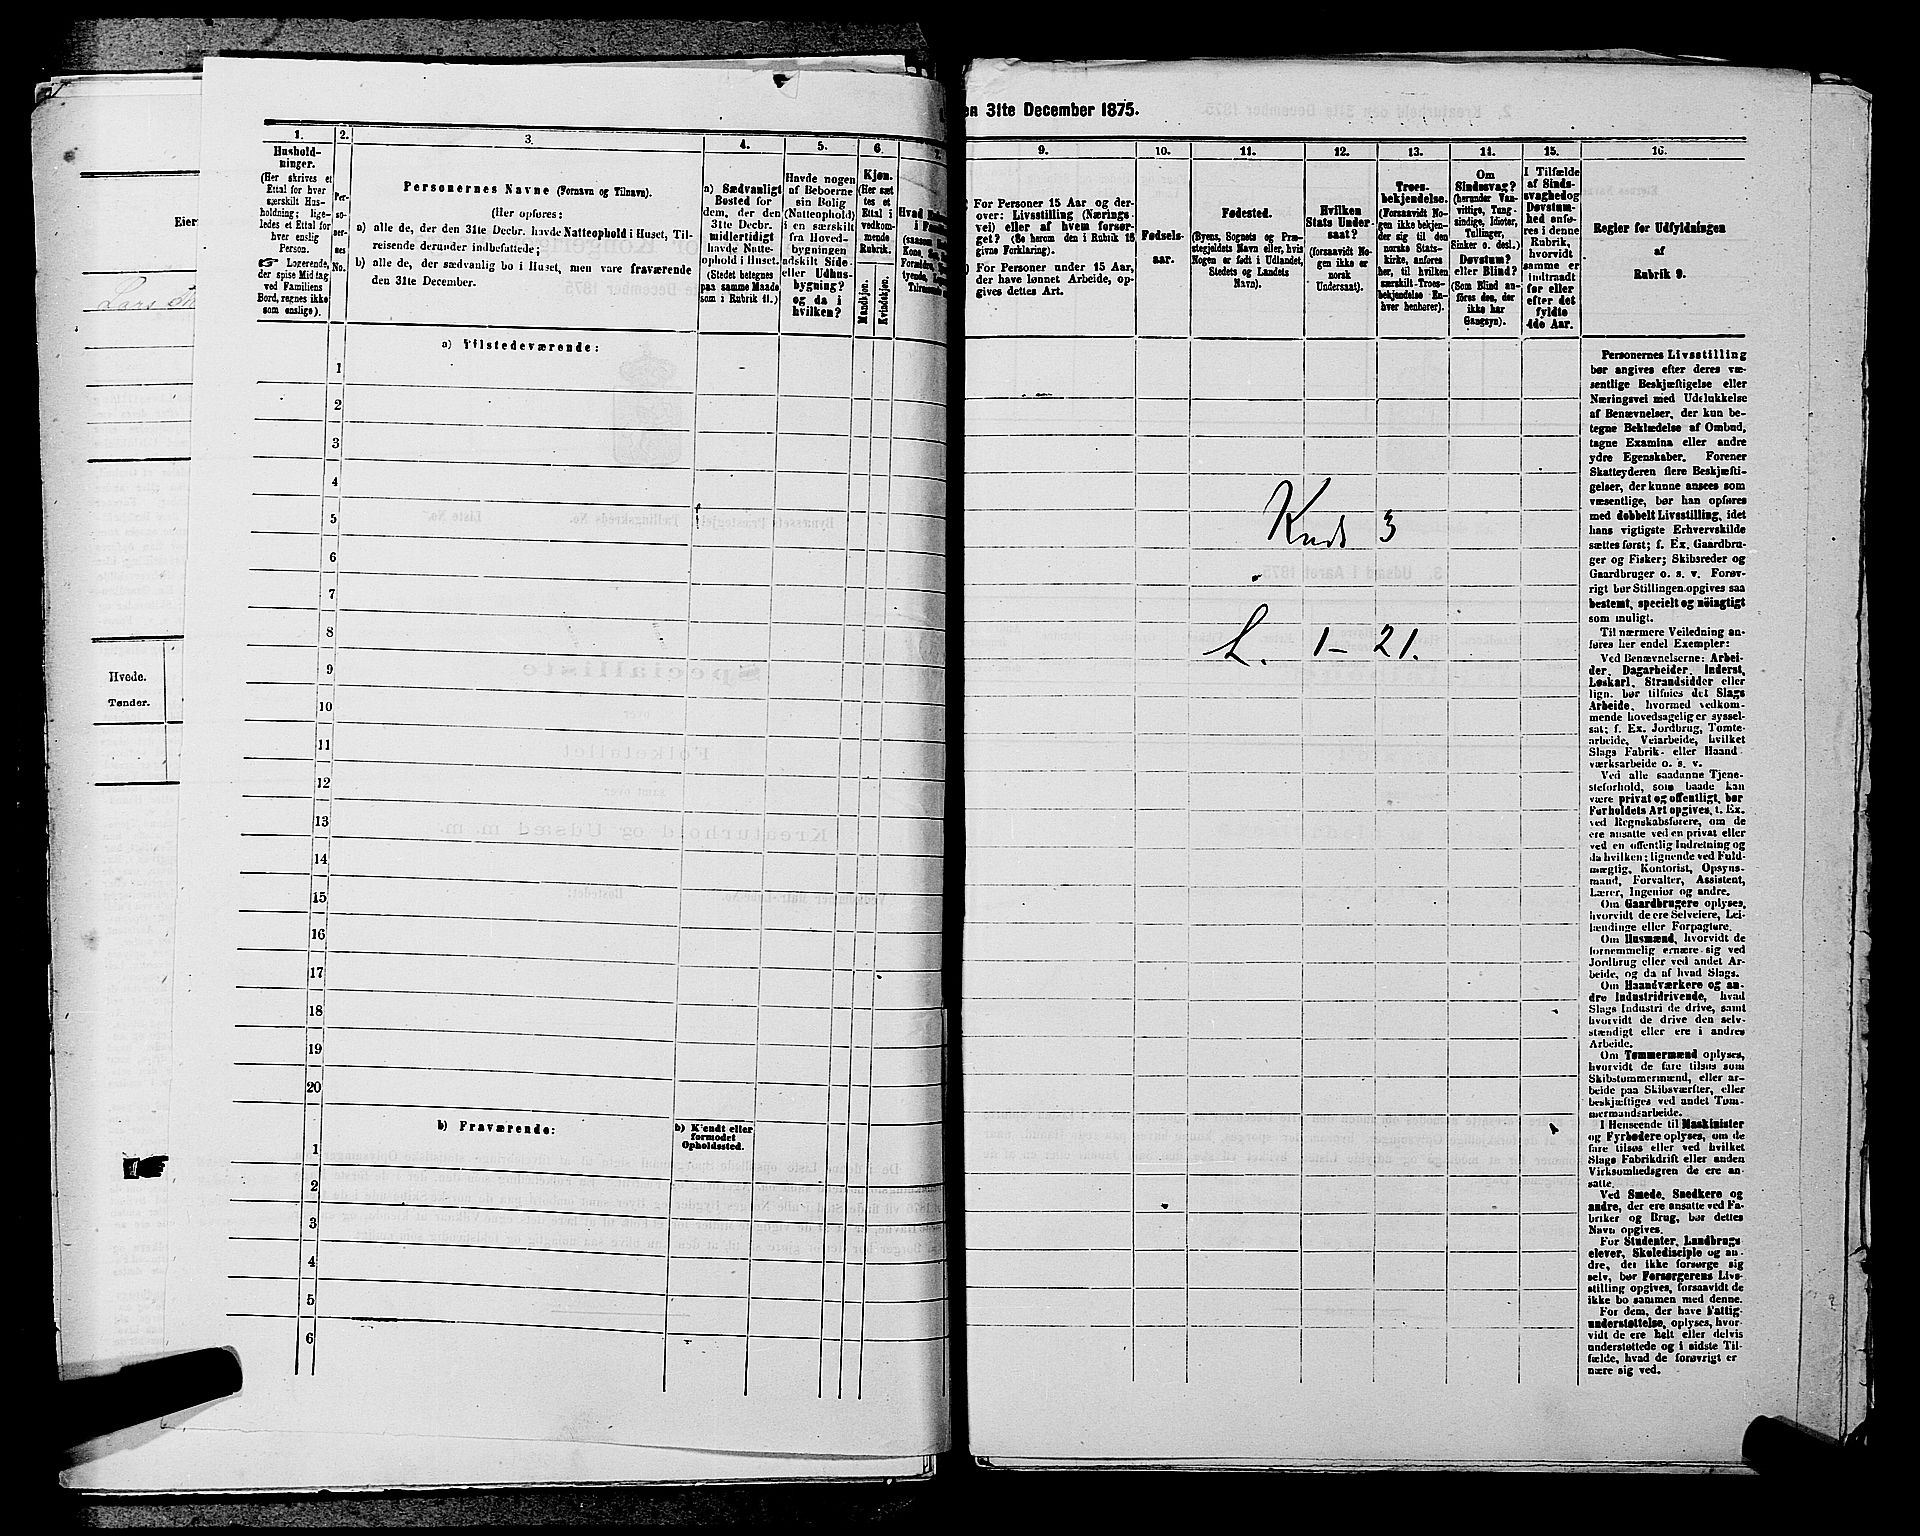 en 31te December 1875.
Eier
Lars
Hvede.
Tønder.
1.
Hushold-
ninger.
(Her skrives et
Ettal for hver
særskilt Hus-
holdning; lige-
ledes et Ettal for
hver enslig
Person.
☞ Logerende,
der spise Middag
ved Familiens
Bord, regnes ikke
som enslige).
2.
Per-
so-
ner-
nes
No.
3.
Personernes Navne (Fornavn og Tilnavn).
(Her opføres:
a) alle de, der den 31te Decbr. havde Natteophold i Huset, Til-
reisende derunder indbefattede;
b) alle de, der sædvanlig bo i Huset, men vare fraværende
den 31te December.
4.
a) Sædvanligt
Bosted for
dem, der den
31te Decbr.
midlertidigt
havde Natte-
ophold i Huset.
(Stedet betegnes
paa samme Maade
som i Rubrik 11.)
5.
Havde nogen
af Beboerne
sin Bolig
(Natteophold)
i en særskilt
fra Hoved-
bygningen
adskilt Side-
eller Udhus-
bygning?
og da i
hvilken?
6.
Kjøn.
(Her sæt-
tes et
Ettal i
vedkom-
mende
Rubrik.
Mandkjøn.
Kvindekjøn.
7.
a) Tilstedeværende:
1
2
3
4
5
6
7
8
9
10
11
12
13
14
15
16
17
18
19
20
b) Fraværende:
b) Kjendt eller
formodet
Opholdssted.
1
2
3
4
5
6
9.
For Personer 15 Aar og der-
over: Livsstilling (Nærings-
vei) eller af hvem forsør-
get? (Se herom den i Rubrik 16
givne Forklaring).
For Personer under 15 Aar,
der have lønnet Arbeide, op-
gives dettes Art.
10.
Fødsels-
aar.
11.
Fødested.
(Byens, Sognets og Præ-
stegjeldets Navn eller, hvis
Nogen er født i Udlandet,
Stedets og Landets
Navn).
12.
Hvilken
Stats Under-
saat?
(forsaavidt No-
gen ikke er
norsk
Undersaat).
13.
Troes-
bekjendelse.
(Forsaavidt No-
gen ikke bekjen-
der sig til den
norske Stats-
kirke, anføres
her, til hvilken
særskilt-Troes-
bekjendelse En-
hver henhører).
14.
Om
Sindssvag?
(herunder Van-
vittige, Tung-
sindige, Idioter,
Tullinger,
Sinker o. desl.)
Døvstum?
eller Blind?
(Som Blind an-
føres den, der
ikke har
Gangsyn).
15.
I Tilfælde
af Sinds-
svaghed og
Døvstum-
hed anfø-
res i denne
Rubrik,
hvorvidt
samme er
indtraadt
før eller
efter det
fyldte
4de Aar.
Kreds 3
L. 1-21.
16.
Regler for Udfyldningen
af
Rubrik 9.
Personernes Livsstilling
bør angives efter deres væ-
sentlige Beskjæftigelse eller
Næringsvei med Udelukkelse
af Benævnelser, der kun be-
tegne Beklædelse af Ombud,
tagne Examina eller andre
ydre Egenskaber. Forener
Skatteyderen flere Beskjæfti-
gelser, der kunne ansees som
væsentlige, bør han opføres
med dobbelt Livsstilling, idet
hans vigtigste Erhvervskilde
sættes først; f. Ex. Gaardbru-
ger og Fisker; Skibsreder og
Gaardbruger o. s. v. Forøv-
rigt bør Stillingen opgives saa
bestemt, specielt og nøiagtigt
som muligt.
Til nærmere Veiledning an-
føres her endel Exempler:
Ved Benævnelserne: Arbei-
der, Dagarbeider, Inderst,
Løskarl, Strandsidder eller
lign. bør tilføies det Slags
Arbeide, hvormed vedkom-
mende hovedsagelig er syssel-
sat; f. Ex. Jordbrug, Tomte-
arbeide, Veiarbeide, hvilket
Slags Fabrik- eller Haand-
værksarbeide o. s. v.
Ved alle saadanne Tjene-
steforhold, som baade kan
være privat og offentligt, bør
Forholdets Art opgives, t. Ex.
ved Regnskabsførere, om de
ere ansatte ved en privat eller
ved en offentlig Indretning og
da hvilken; lignende ved Fuld-
mægtig, Kontorist, Opsyns-
mand, Forvalter, Assistent,
Lærer, Ingeniør og andre.
Om Gaardbrugere oplyses,
hvorvidt de ere Selveiere, Lei-
lændinge eller Forpagtere.
Om Husmænd, hvorvidt de
fornemmelig ernære sig ved
Jordbrug eller ved andet Ar-
beide, og da af hvad Slags.
Om Haandværkere og an-
dre Industridrivende, hvad
Slags Industri de drive, samt
hvorvidt de drive den selv-
stændigt eller ere i andres
Arbeide.
Om Tømmermænd oplyses,
hvorvidt de fare tilsøs som
Skibstømmermænd, eller ar-
beide paa Skibsværfter, eller
beskjæftiges ved andet Tøm-
mermandsarbeide.
I Henseende til Maskinister
og Fyrbødere oplyses, om de
fare tilsøs eller ved hvilket
Slags Fabrikdrift eller anden
Virksomhedsgren de ere an-
satte.
Ved Smede, Snedkere og
andre, der ere ansatte ved Fa-
briker og Brug, bør dettes
Navn opgives.
For Studenter, Landbrugs-
elever, Skoledisciple og an-
dre, der ikke forsørge sig
selv, bør Forsørgerens Livs-
stilling opgives, forsaavidt de
ikke bo sammen med denne.
For dem, der have Fattig-
understøttelse, oplyses, hvor-
vidt de ere helt eller delvis
understøttede og i sidste Til-
fælde, hvad de forøvrigt er-
nære sig ved.